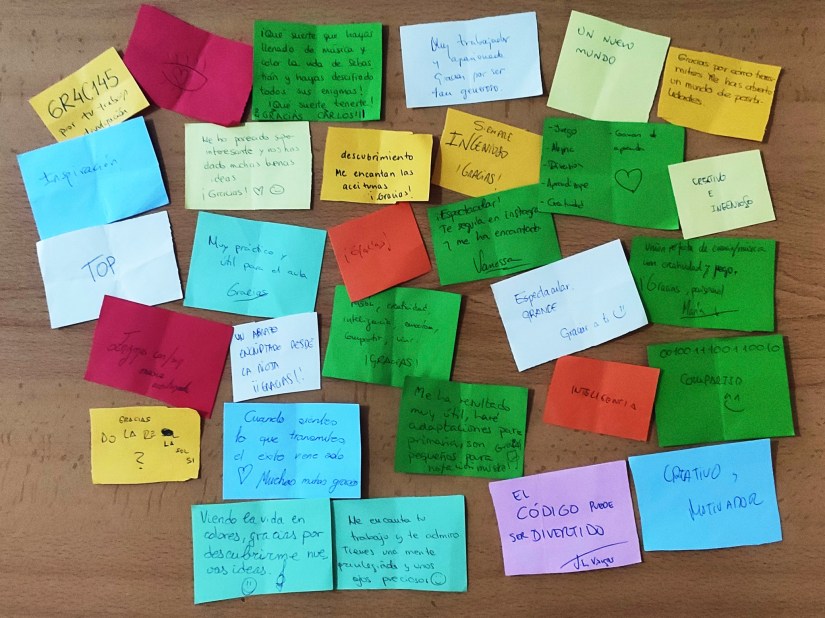 GR4C145
por tu trabajo
¡Qué suerte que hayas
llenado de música y
color la vida de Sabas
tián y hayas descifrado
todos sus enigmas!
¡Qué suerte tenerte!
GRACIAS CARLOS!!!
Muy trabajador
y apasionado
Gracias por ser
tan generoso.
UN NUEVO
MUNDO
Gracias por como transmites
Me has abierto
un mundo de posibi-
lidades.
Inspiración
Me ha parecido super
interesante y nos has
dado muchas buenas
ideas
¡Gracias!
descubrimiento
Me encantan las
aceitunas
¡Gracias!
SIEMPRE
INGENIOSO
¡GRACIAS!
- Juego
- Diversión
- Aprendizaje
- Creatividad
CREATIVO
E
INGENIOSO
TOP
Muy práctico y
útil para el aula
Gracias
¡Espectacular!
Te seguía en Instagram
y me ha encantado
Vanessa
Espectacular.
GRANDE
Gracias a ti
creatividad y juego,
¡Gracias, personal
María
UN ABRAZO
ENCRIPTADO DESDE
LA RIOJA
¡¡GRACIAS!!
creatividad
inteligencia, emoción,
compartir,
¡GRACIAS!
INTELIGENCIA
001001110011 0010
COMPARTIDO
GRACIAS
DO LA RE SOL
LA
SOL
SI
?
Cuando sientes
lo que transmites
el éxito viene solo
Muchas gracias
Me ha resultado
muy útil, haré
adaptaciones para
primaria, son
pequeños para
Gracias
EL
CÓDIGO PUEDE
SER DIVERTIDO
CREATIVO,
MOTIVADOR
Viendo la vida en
colores, gracias por
descubrirme nue-
vas ideas.
Me encanta tu
trabajo y te admiro
Tienes una mente
privilegiada y unos
ojos preciosos